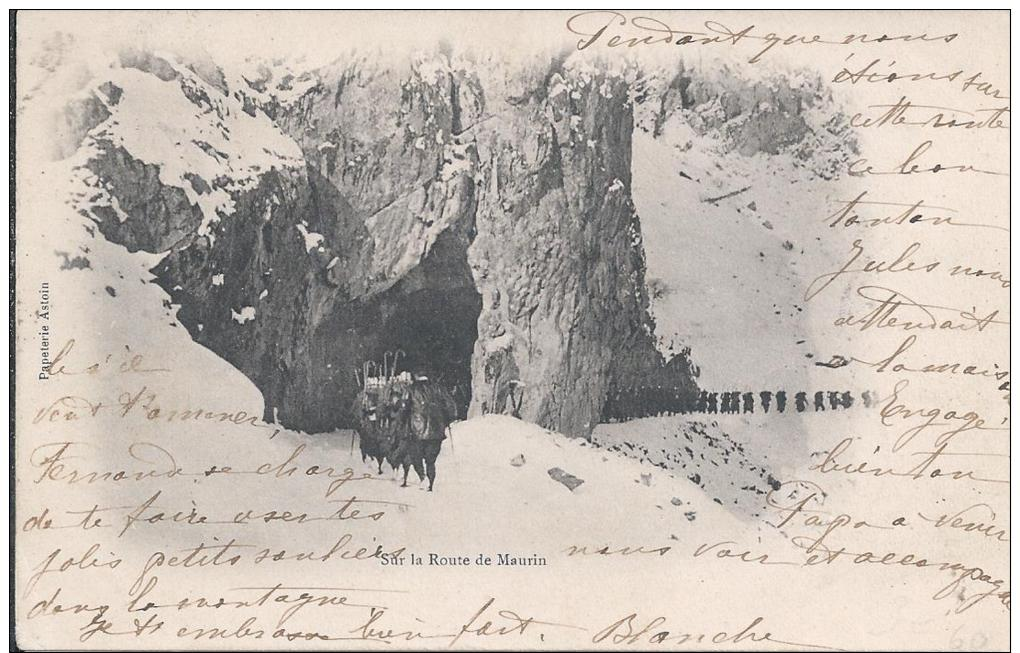 Pendant que nous
étions sur
cette route
ce bon
tonton
Jules nous
attendait
la maison
Engage
bien ton
Papa a venir
nous voir et accompagne
le s'il
veut t'amener,
Fernand se charge
de te faire user tes
jolis petits souliers
dans la montagne
Je t'embrasse bien fort. Blanche
Sur la Route de Maurin
Papeterie Astoin
60